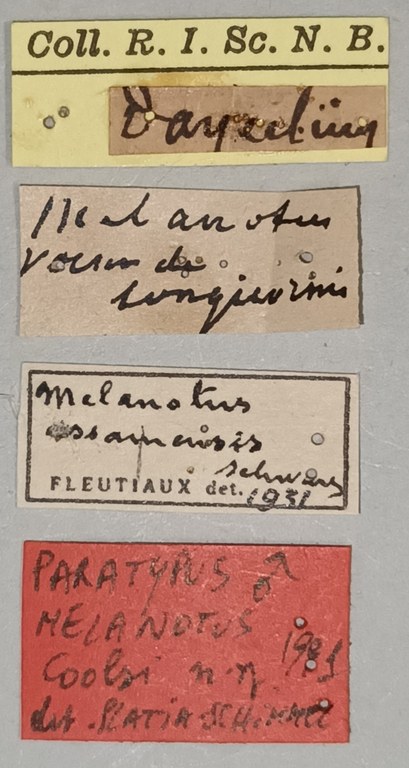 Coll. R. I. Sc. N. B.
Darjeeling
Melanotus
voisin de
longicornis
Melanotus
assamensis
Schwarz
FLEUTIAUX det. 1931
PARATYPUS ♂
MELANOTUS
Coolsi n.
det. PLATIA SCHIMMEL